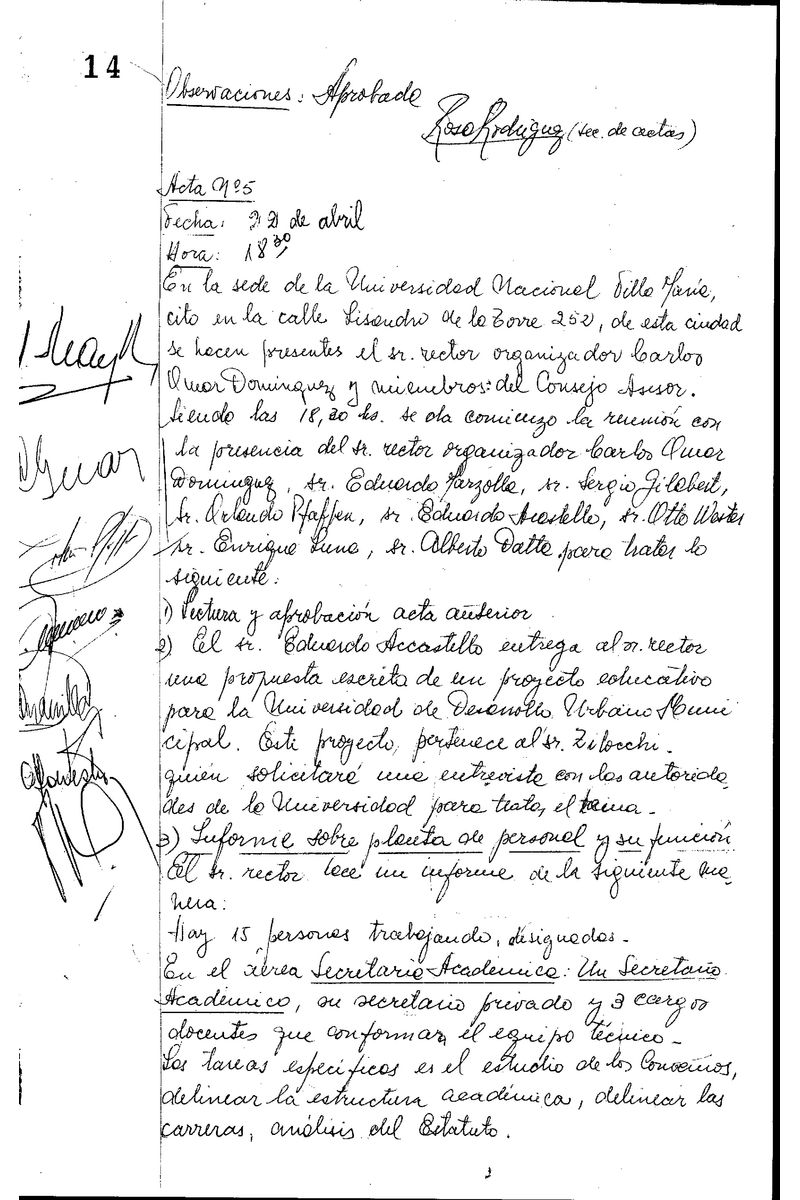 14
Observaciones: Aprobado
Rosa Rodriguez (sec. de actas)
Acta Nº5
Fecha: 22 de abril
Hora: 18 30
En la sede de la Universidad Nacional Villa María,
cito en la calle Lisandro de la Torre 252, de esta ciudad
se hacen presentes el sr. rector organizador Carlos
Omar Dominguez y miembros del Consejo Asesor.
Siendo las 18,30 hs. se da comienzo la reunión con
la presencia del sr. rector organizador Carlos Omar
Dominguez, sr. Eduardo, sr. Sergio Gilabert,
Sr. Orlando Pfaffen, sr. Eduardo Acastello, sr. Otto Wester
sr. Enrique Luna, sr. Alberto Datta para tratar lo
siguiente:
1) Lectura y aprobación acta anterior
2) El sr. Eduardo Accastello entrega al sr. rector
una propuesta escrita de un proyecto educativo
para la Universidad de Desarrollo Urbano Muni
cipal. Este proyecto, pertenece al sr. Zilocchi.
quién solicitará una entrevista con las autorida
des de la Universidad para tratar el tema.
3) Informe sobre planta de personal y su función
El sr. rector hace un informe de la siguiente ma
nera:
Hay 15 personas trabajando, designadas.
En el aérea Secretaria Academica: Un Secretario
Académico, su secretario privado y 3 cargos
docentes que conforman el equipo técnico.
Las tareas específicas es el estudio de los Convenios,
delinear la estructura académica, delinear las
carreras, análisis del Estatuto.